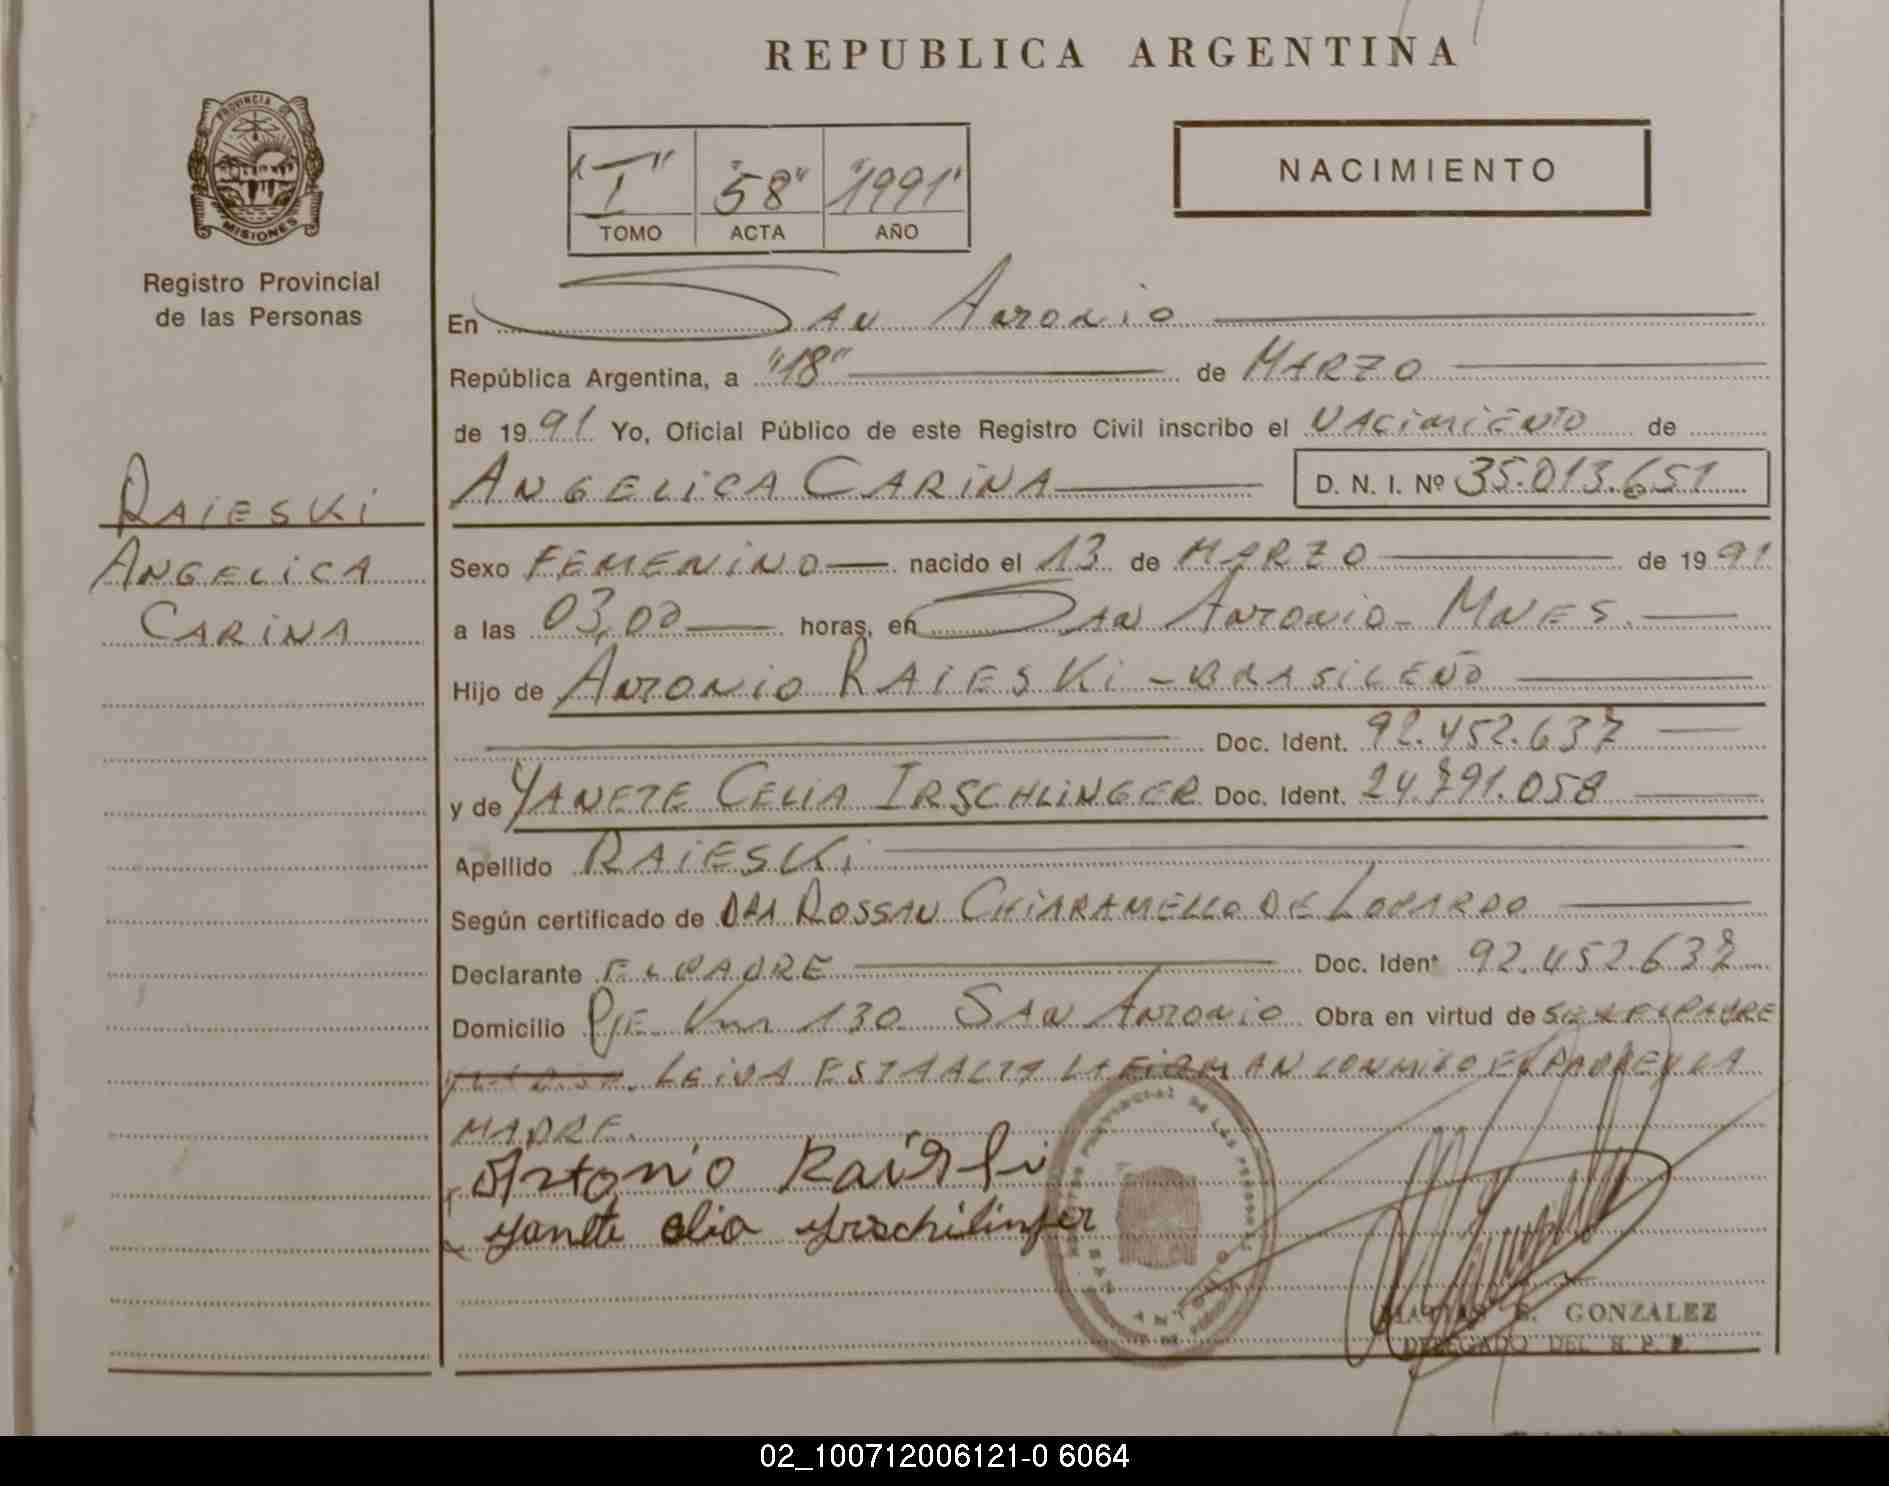 REPUBLICA ARGENTINA
PROVINCIA DE
MISIONES
Registro Provincial
de las Personas
"I" "58" "1991"
TOMO ACTA AÑO
NACIMIENTO
En San Antonio
República Argentina, a "18" de MARZO
de 1991 Yo, Oficial Público de este Registro Civil inscribo el NACiMiENTO de
ANGELiCA CARiNA D. N. I. Nº 35.013.651
RAIESKi
ANGELiCA
CARiNA
Sexo FEMENiNO nacido el 13 de MARZO de 1991
a las 03,00 horas, en San Antonio - MNES.
Hijo de Antonio RAIESKi - BRASiLEÑO
Doc. Ident. 92.452.637
y de YANETE CELIA IRSCHLINGER Doc. Ident. 24.791.058
Apellido RAiESKi
Según certificado de DRA ROSSAN CHiARAMELLO DE LOPARDO
Declarante EL PADRE Doc. Ident 92.452.637
Domicilio PJE Km 130 SAN Antonio Obra en virtud de SER EL PADRE
LEiDA ESTA ACTA LA FiRMAN CONMiGO EL PADRE Y LA
MADRE.
Antonio Raieski
Yanete elia yrschilinger
REGISTRO PROVINCIAL DE LAS PERSONAS
SAN ANTONIO
MATIAS E. GONZALEZ
DELEGADO DEL R. P. P.
02_100712006121-0 6064